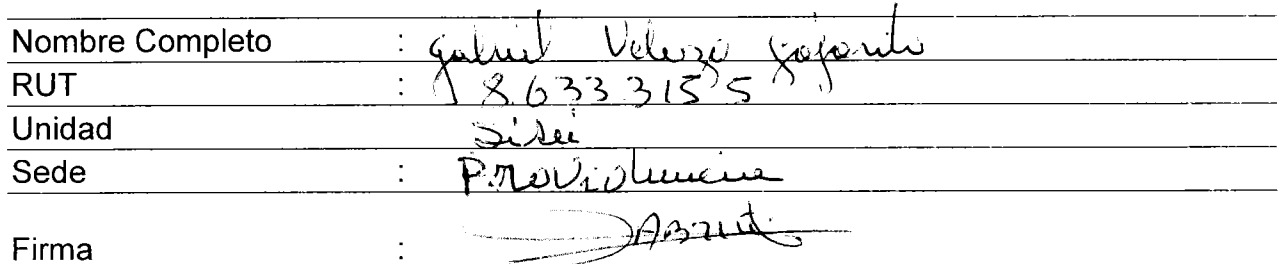 Nombre Completo : Gabriel Velozo
RUT : 8.633.315 5
Unidad
Sede : Providencia
Firma :